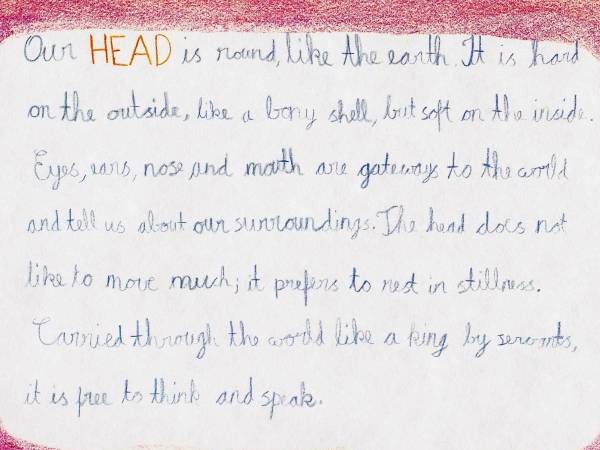 Our HEAD is round, like the earth. It is hard
on the outside, like a bony shell, but soft on the inside.
Eyes, ears, nose and mouth are gateways to the world
and tell us about our surroundings. The head does not
like to move much; it prefers to rest in stillness.
Carried through the world like a king by servants,
it is free to think and speak.